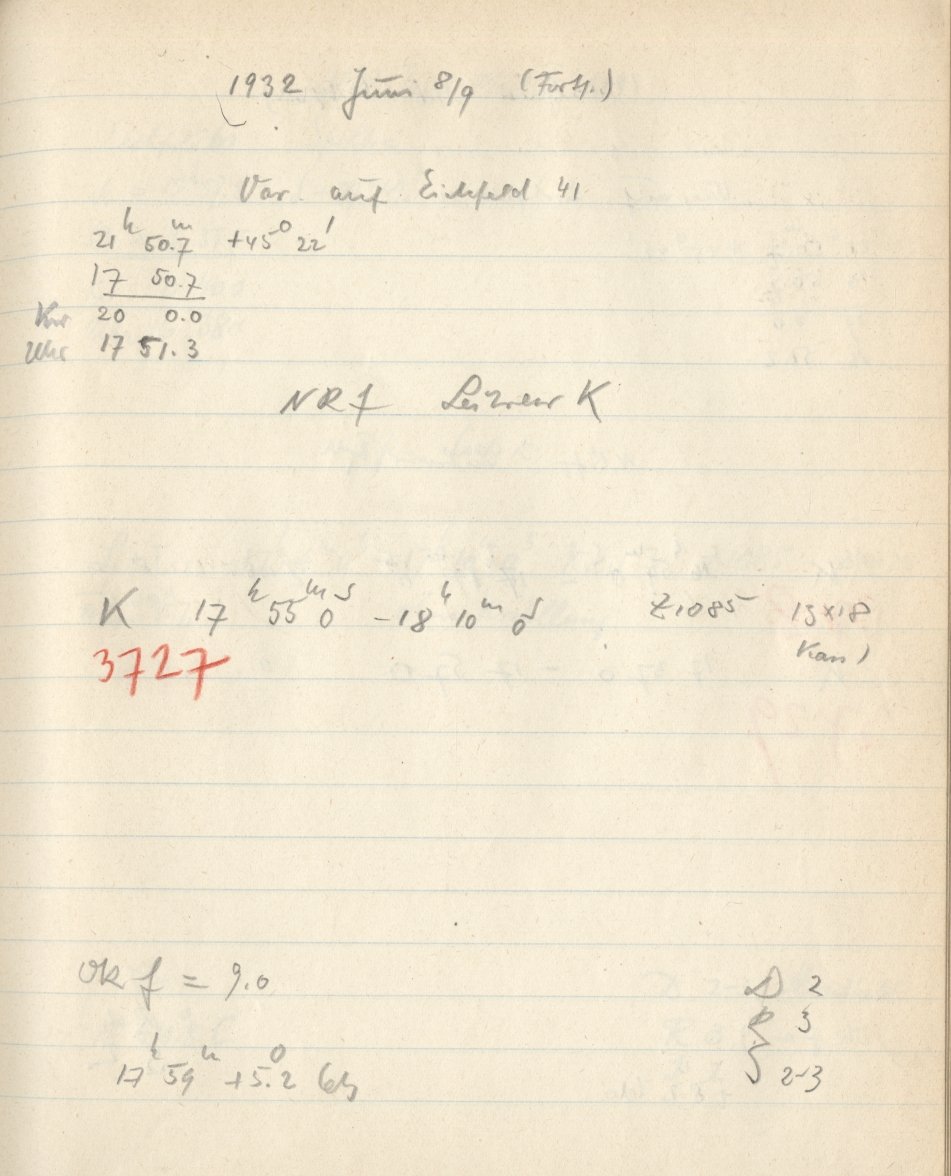 1932 Juni 8/9 (Forts.)
Var auf Eichfeld 41
21h 50.7m +45° 22'
17 50.7
Kor 20 0.0
Uhr 17 51.3
NRf K
K 17h 55m 0s -18h 10m 0s Z1085 13x18
3727
Ok f = 9.0
2
3
17h 59m +5.2°
2-3